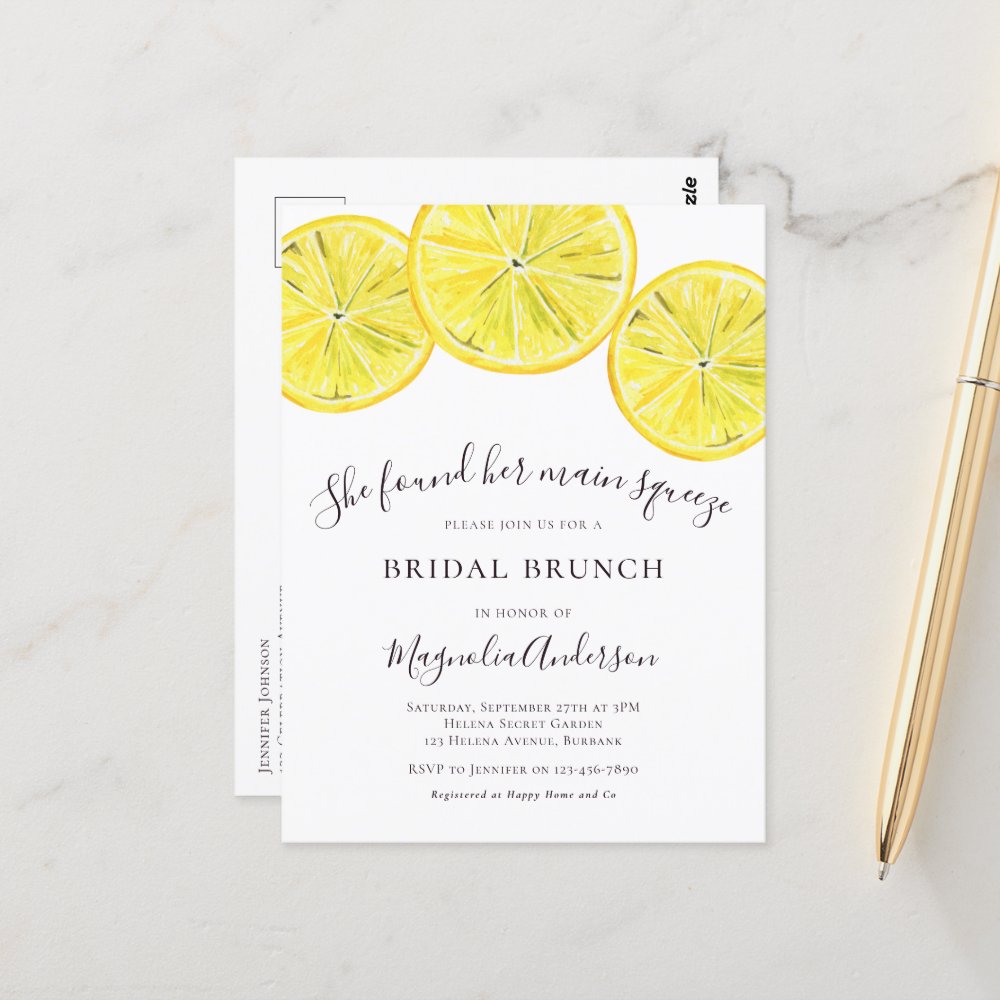 She found her main squeeze
PLEASE JOIN US FOR A
BRIDAL BRUNCH
IN HONOR OF
Magnolia Anderson
SATURDAY, SEPTEMBER 27TH AT 3PM
HELENA SECRET GARDEN
123 HELENA AVENUE, BURBANK
RSVP TO JENNIFER ON 123-456-7890
Registered at Happy Home and Co
JENNIFER JOHNSON